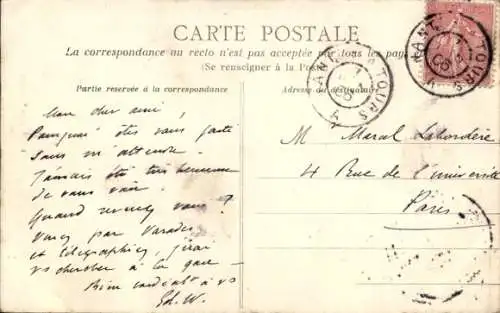 CARTE POSTALE
La correspondance au recto n'est pas acceptée par tous les pays
(Se renseigner à la Poste)
Partie réservée à la correspondance
Adresse du destinataire
Mon cher ami,
Pourquoi êtes vous parti
sans m'attendre.
J'aurais été très heureuse
de vous voir.
Quand revenez vous ?
Venez par Varades
et télégraphiez, j'irai
vs chercher à la gare
Bien cordialt à vs
Ed. W.
M Marcel Labordère
4 Rue de l'Université
Paris
NANTES A TOURS
NANTES A TOURS